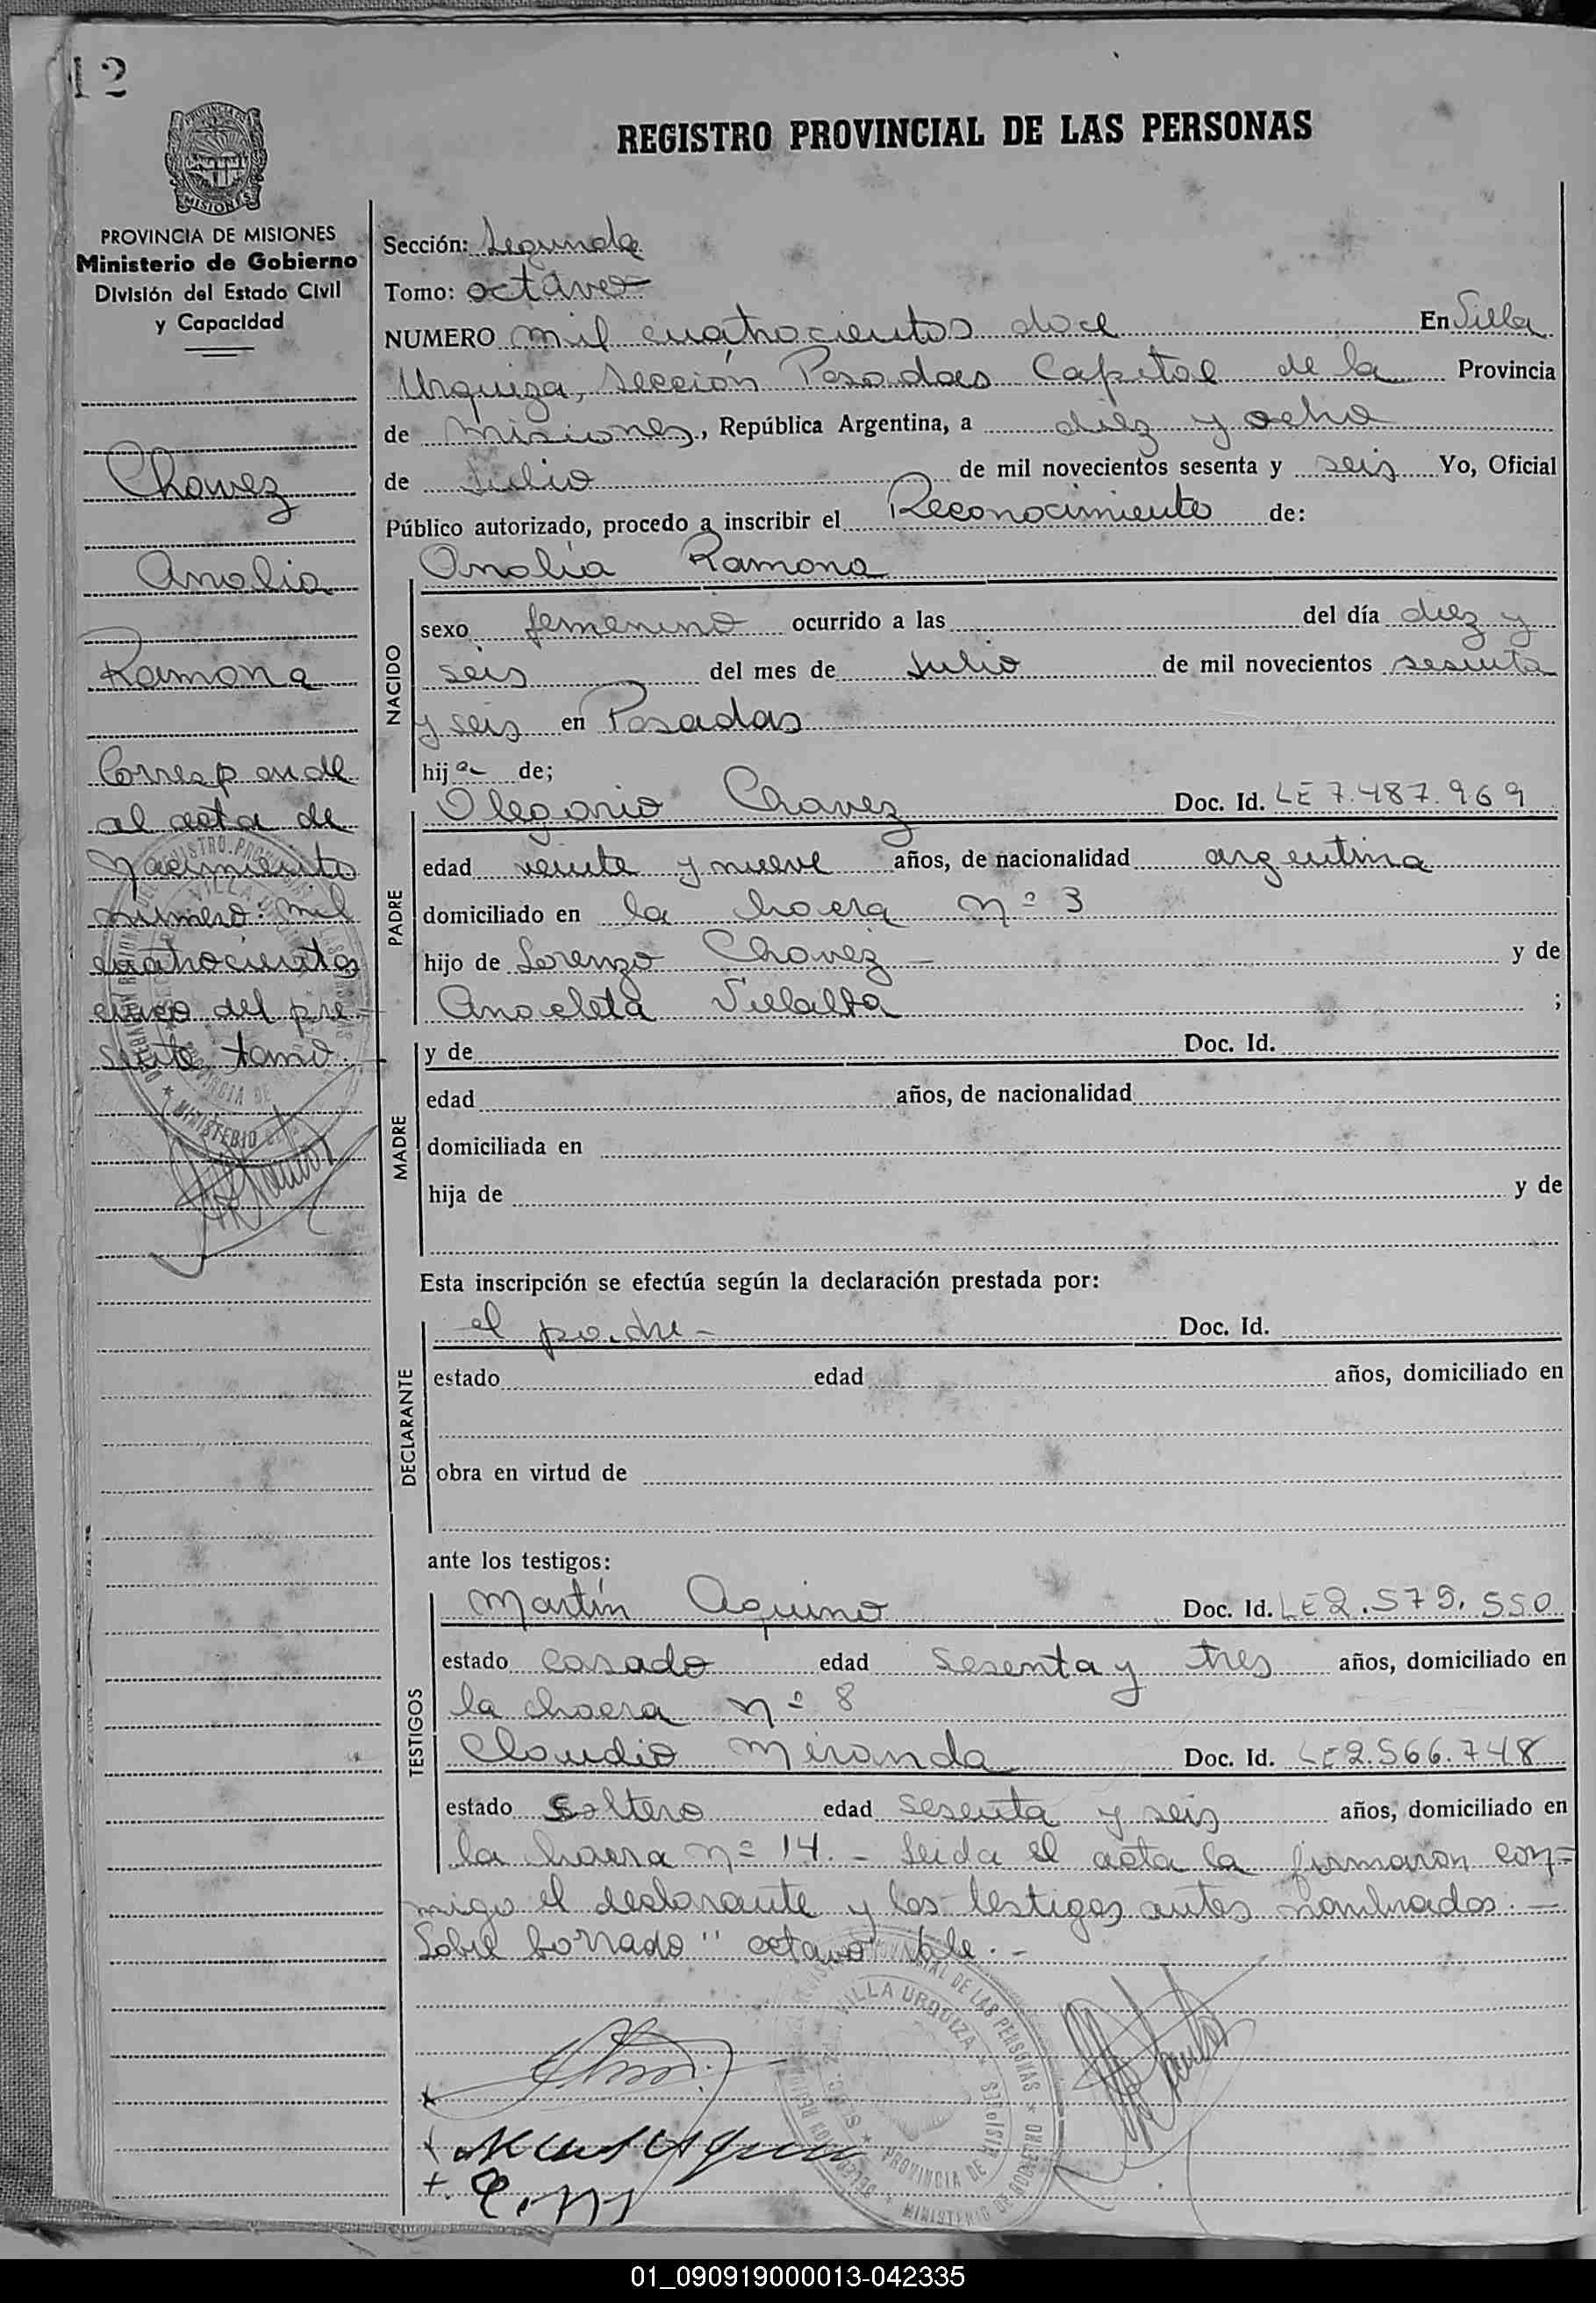 12
REGISTRO PROVINCIAL DE LAS PERSONAS
MISIONES
PROVINCIA DE MISIONES
Ministerio de Gobierno
División del Estado Civil
y Capacidad
Chavez
Analia
Ramona
Corresponde
al acta de
Nacimiento
número: mil
cuatrocientos
once del pre-
sente tomo.-
Sección: Segunda
Tomo: octavo
NUMERO mil cuatrocientos doce En Villa
Urquiza, Sección Posadas Capital de la Provincia
de Misiones, República Argentina, a diez y ocho
de Julio de mil novecientos sesenta y seis Yo, Oficial
Público autorizado, procedo a inscribir el Reconocimiento de:
NACIDO
Analía Ramona
sexo femenino ocurrido a las del día diez y
seis del mes de Julio de mil novecientos sesenta
y seis en Posadas
hija de;
PADRE
Olegario Chavez Doc. Id. LE 7.487.969
edad veinte y nueve años, de nacionalidad argentina
domiciliado en la chacra Nº 3
hijo de Lorenzo Chavez y de
Anacleta Villalba ;
MADRE
y de Doc. Id.
edad años, de nacionalidad
domiciliada en
hija de y de
Esta inscripción se efectúa según la declaración prestada por:
DECLARANTE
el padre - Doc. Id.
estado edad años, domiciliado en
obra en virtud de
ante los testigos:
TESTIGOS
Martín Aquino Doc. Id. LE 2.575.550
estado casado edad sesenta y tres años, domiciliado en
la chacra Nº 8
Claudio Miranda Doc. Id. LE 2.566.748
estado Soltero edad sesenta y seis años, domiciliado en
la chacra Nº 14. - Leida el acta la firmaron con-
migo el declarante y los testigos antes nombrados. -
Sobre borrado "octavo" Vale. -
VILLA URQUIZA
PROVINCIA DE MISIONES
01_090919000013-042335